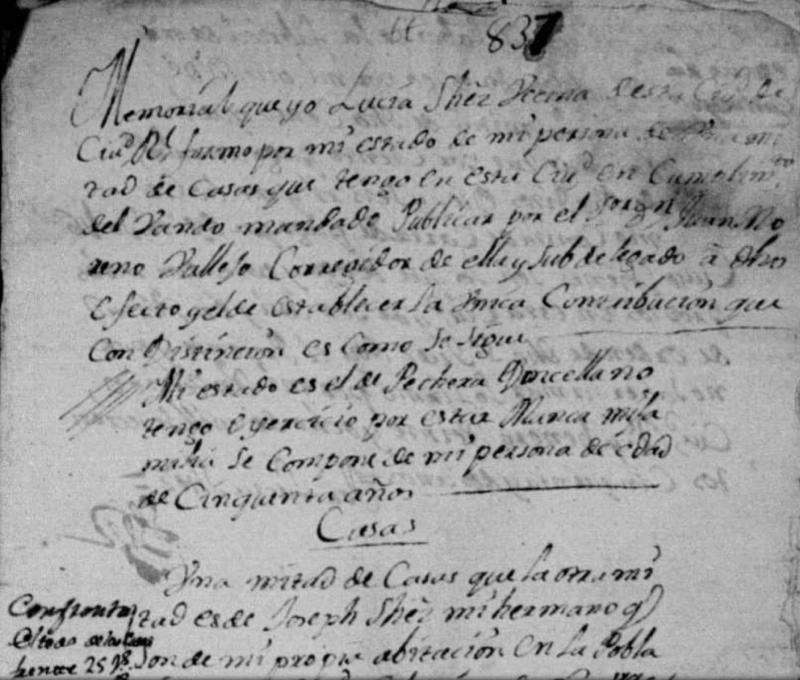 837
Memorial que yo Lucia Shẽz Vecina de esta Ciud de
Ciud Rl formo por mi estado de mi persona de Una mi
tad de Casas que tengo en esta Ciud en Cumplimto
del Vando mandado Publicar por el Sor Dn Juan Mo
reno Vallejo Correxidor de ella y Subdelegado â dho
efecto y el de establecer la Vnica Contribucion que
Con Distincion es Como se sigue
Mi estado es el de Pechera Doncella no
tengo exercicio por estar Manca mi fa
milia Se Compone de mi persona de edad
de Cinquenta años
Casas
Vna mitad de Casas que la otra mi
tad es de Joseph Shẽz mi hermano q
son de mi propia abitacion en la Pobla
Confronta
el todo de las Casas